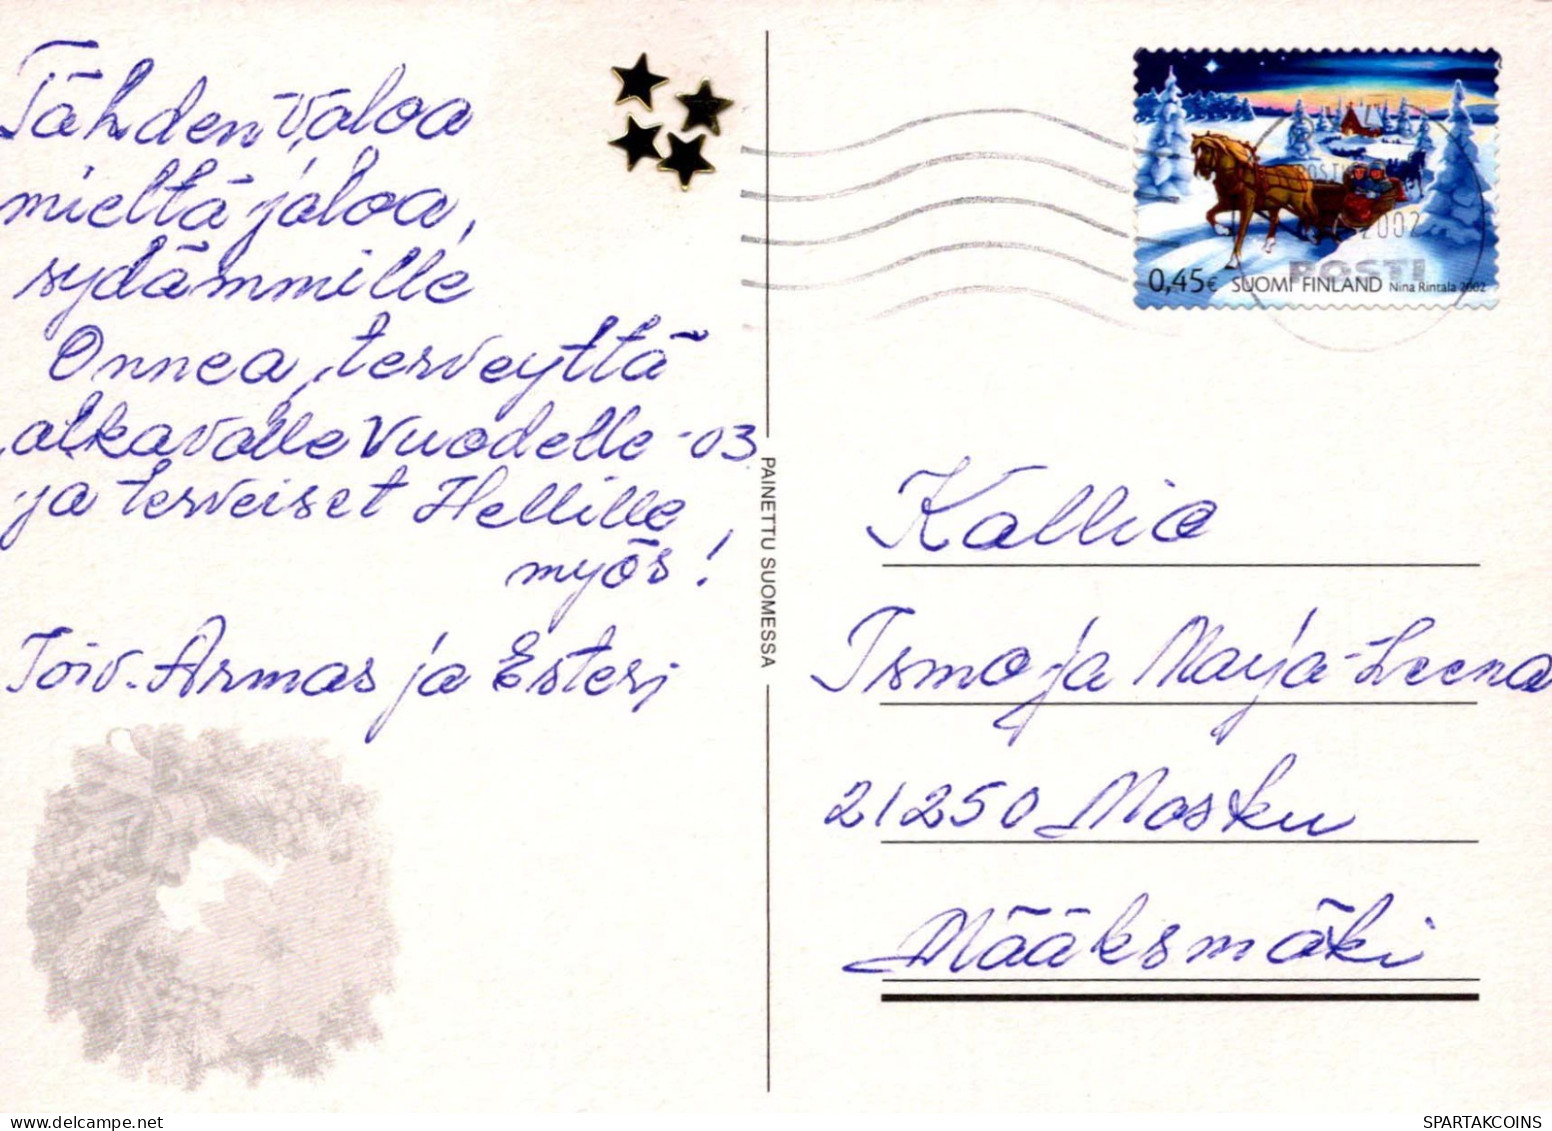 Tähden valoa
mieltä jaloa,
sydämmille
Onnea, terveyttä
alkavalle Vuodelle -03
ja terveiset Hellille
myös!
Toiv. Armas ja Esteri
PAINETTU SUOMESSA
0,45€ SUOMI FINLAND Nina Rintala 2002
2002
POSTI
Kallio
Ismo ja Marja-Leena
21250 Masku
Määksmäki
SPARTAKCOINS